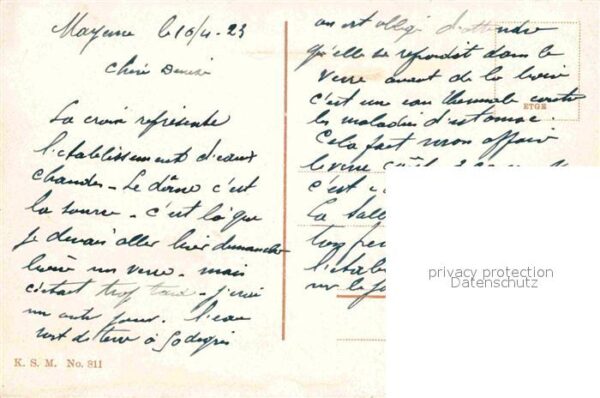 Mayenne le 16/4-23
Chère Denise
La croix représente
l'établissement d'eaux
chaudes - Le dôme c'est
la source - c'est là que
je devais aller hier dimanche
boire un verre - mais
c'était trop tard - j'irai
un autre jour. l'eau
sort de terre à 50 degrés
on est obligé d'attendre
qu'elle se refroidit dans le
verre avant de la boire
c'est une eau thermale contre
les maladies d'estomac.
Cela fait mon affaire
le verre coûte
c'est
La Salle
trop
l'établ
sur le
ETGR
K. S. M. No. 811
privacy protection
Datenschutz